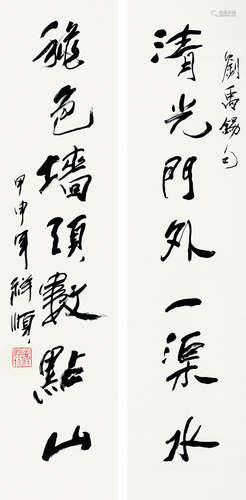 劉禹錫句
清光門外一渠水
秋色墻頭數點山
甲申年